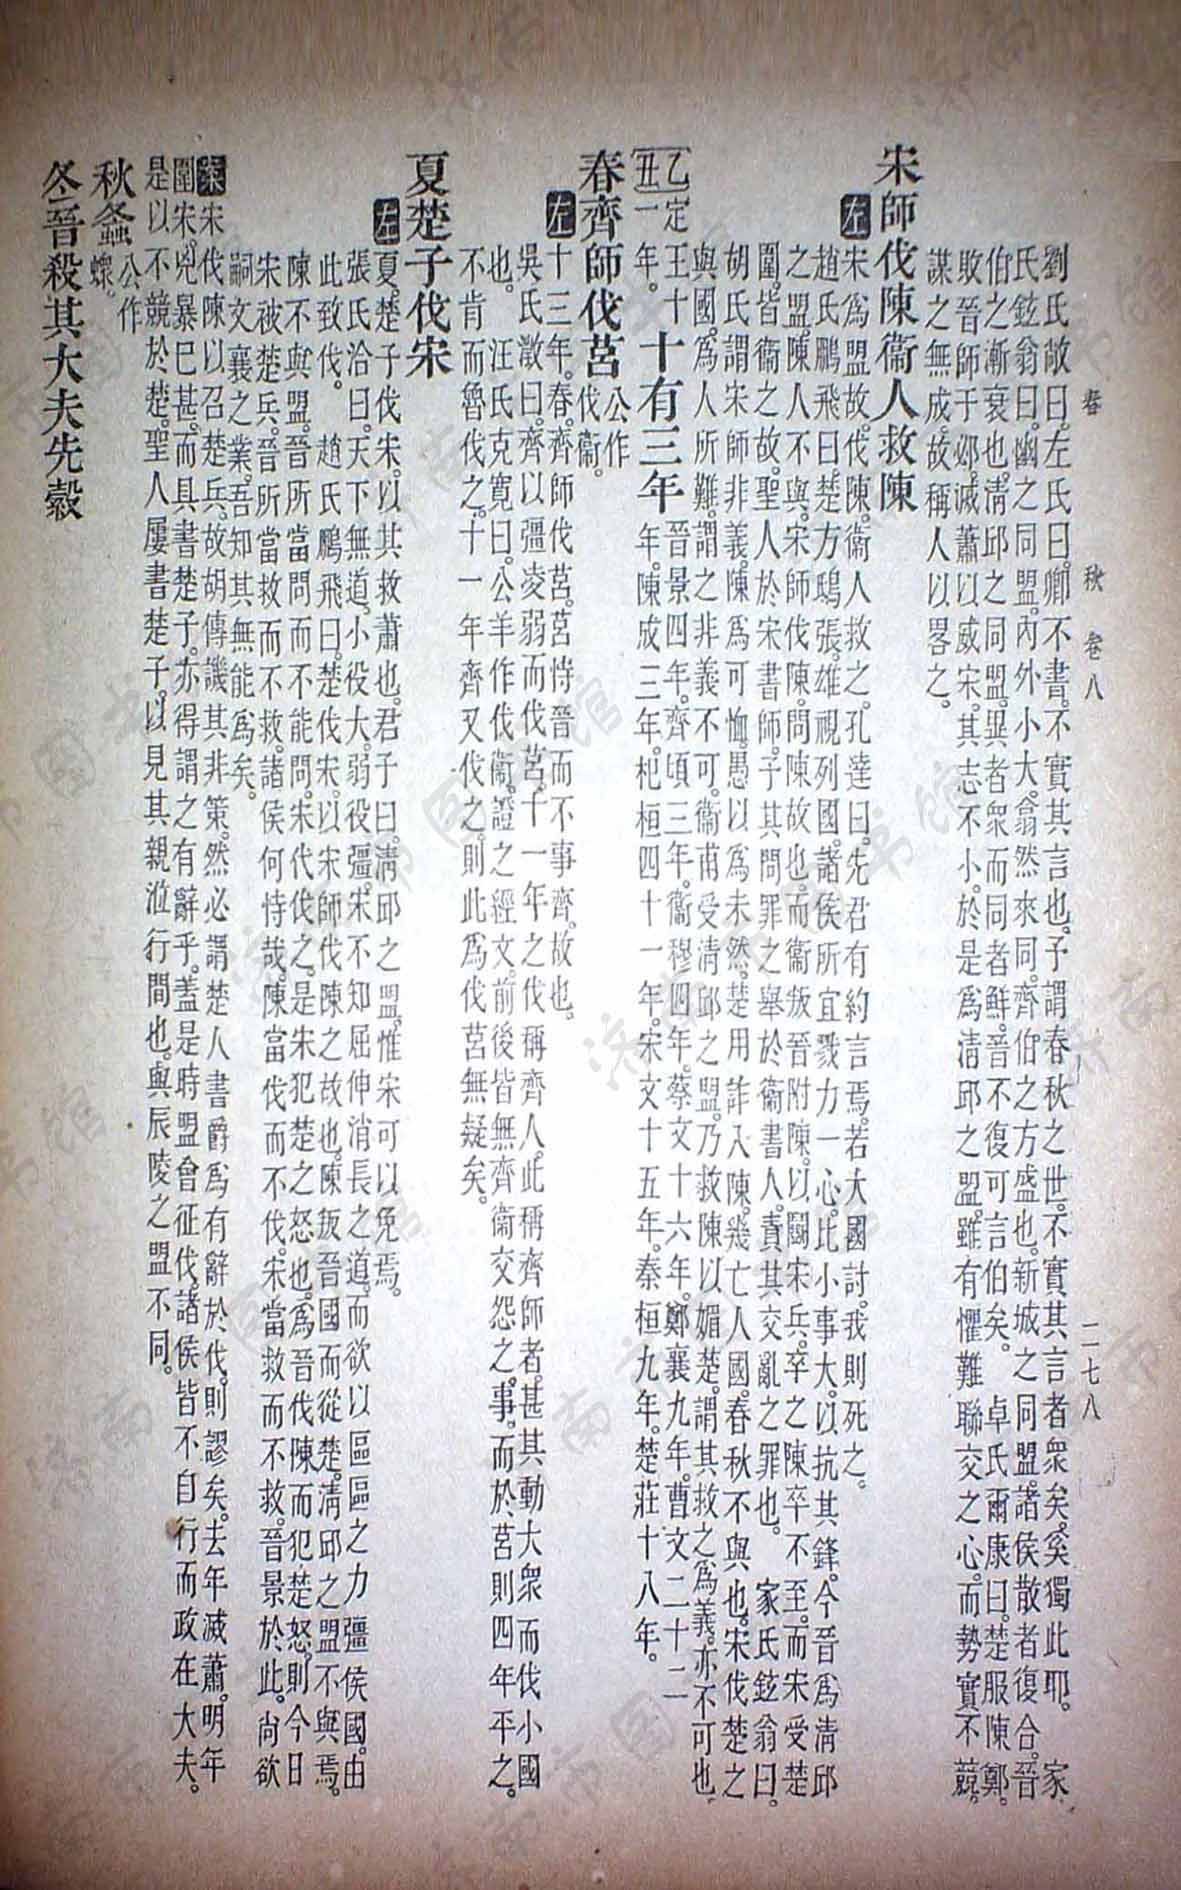 春秋 卷八 二七八
劉氏敞曰。左氏曰。卿不書。不實其言也。予謂春秋之世。不實其言者衆矣。奚獨此耶。 家
氏鉉翁曰。幽之同盟。內外小大。翕然來同。齊伯之方盛也。新城之同盟。諸侯散者復合。晉
伯之漸衰也。淸邱之同盟。異者衆而同者鮮。晉不復可言伯矣。 卓氏爾康曰。楚服陳鄭。
敗晉師于邲。滅蕭以威宋。其志不小。於是爲淸邱之盟。雖有懼難聯交之心。而勢實不競。
謀之無成。故稱人以畧之。
宋師伐陳衞人救陳
左 宋爲盟故。伐陳。衞人救之。孔達曰。先君有約言焉。若大國討。我則死之。
趙氏鵬飛曰。楚方鴟張。雄視列國。諸侯所宜戮力一心。比小事大。以抗其鋒。今晉爲淸邱
之盟。陳人不與。宋師伐陳。問陳故也。而衞叛晉附陳。以鬬宋兵。卒之陳卒不至。而宋受楚
圍。皆衞之故。聖人於宋書師。予其問罪之舉。於衞書人。責其交亂之罪也。 家氏鉉翁曰。
胡氏謂宋師非義。陳爲可恤。愚以爲未然。楚用詐入陳。幾亡人國。春秋不與也。宋伐楚之
與國。爲人所難。謂之非義不可。衞甫受淸邱之盟。乃救陳以媚楚。謂其救之爲義。亦不可也。
乙丑 定王十一年。 十有三年 晉景四年。齊頃三年。衞穆四年。蔡文十六年。鄭襄九年。曹文二十二年。陳成三年。杞桓四十一年。宋文十五年。秦桓九年。楚莊十八年。
春齊師伐莒 公作伐衞。
左 十三年。春。齊師伐莒。莒恃晉而不事齊。故也。
吳氏澂曰。齊以彊凌弱而伐莒。十一年之伐稱齊人。此稱齊師者。甚其動大衆而伐小國
也。 汪氏克寬曰。公羊作伐衞。證之經文。前後皆無齊衞交怨之事。而於莒則四年平之。
不肯而魯伐之。十一年齊又伐之。則此爲伐莒無疑矣。
夏楚子伐宋
左 夏。楚子伐宋。以其救蕭也。君子曰。淸邱之盟。惟宋可以免焉。
張氏洽曰。天下無道。小役大。弱役彊。宋不知屈伸消長之道。而欲以區區之力彊侯國。由
此致伐。 趙氏鵬飛曰。楚伐宋。以宋師伐陳之故也。陳叛晉國而從楚。淸邱之盟不與焉。
陳不與盟。晉所當問而不能問。宋代伐之。是宋犯楚之怒也。爲晉伐陳而犯楚怒。則今日
宋被楚兵。晉所當救而不救。諸侯何恃哉。陳當伐而不伐。宋當救而不救。晉景於此。尚欲
嗣文襄之業。吾知其無能爲矣。
案 宋伐陳以召楚兵。故胡傳譏其非策。然必謂楚人書爵爲有辭於伐。則謬矣。去年滅蕭。明年
圍宋。兇暴已甚。而具書楚子。亦得謂之有辭乎。蓋是時盟會征伐。諸侯皆不自行而政在大夫。
是以不競於楚。聖人屢書楚子。以見其親涖行間也。與辰陵之盟不同。
秋螽 公作蝝。
冬晉殺其大夫先縠